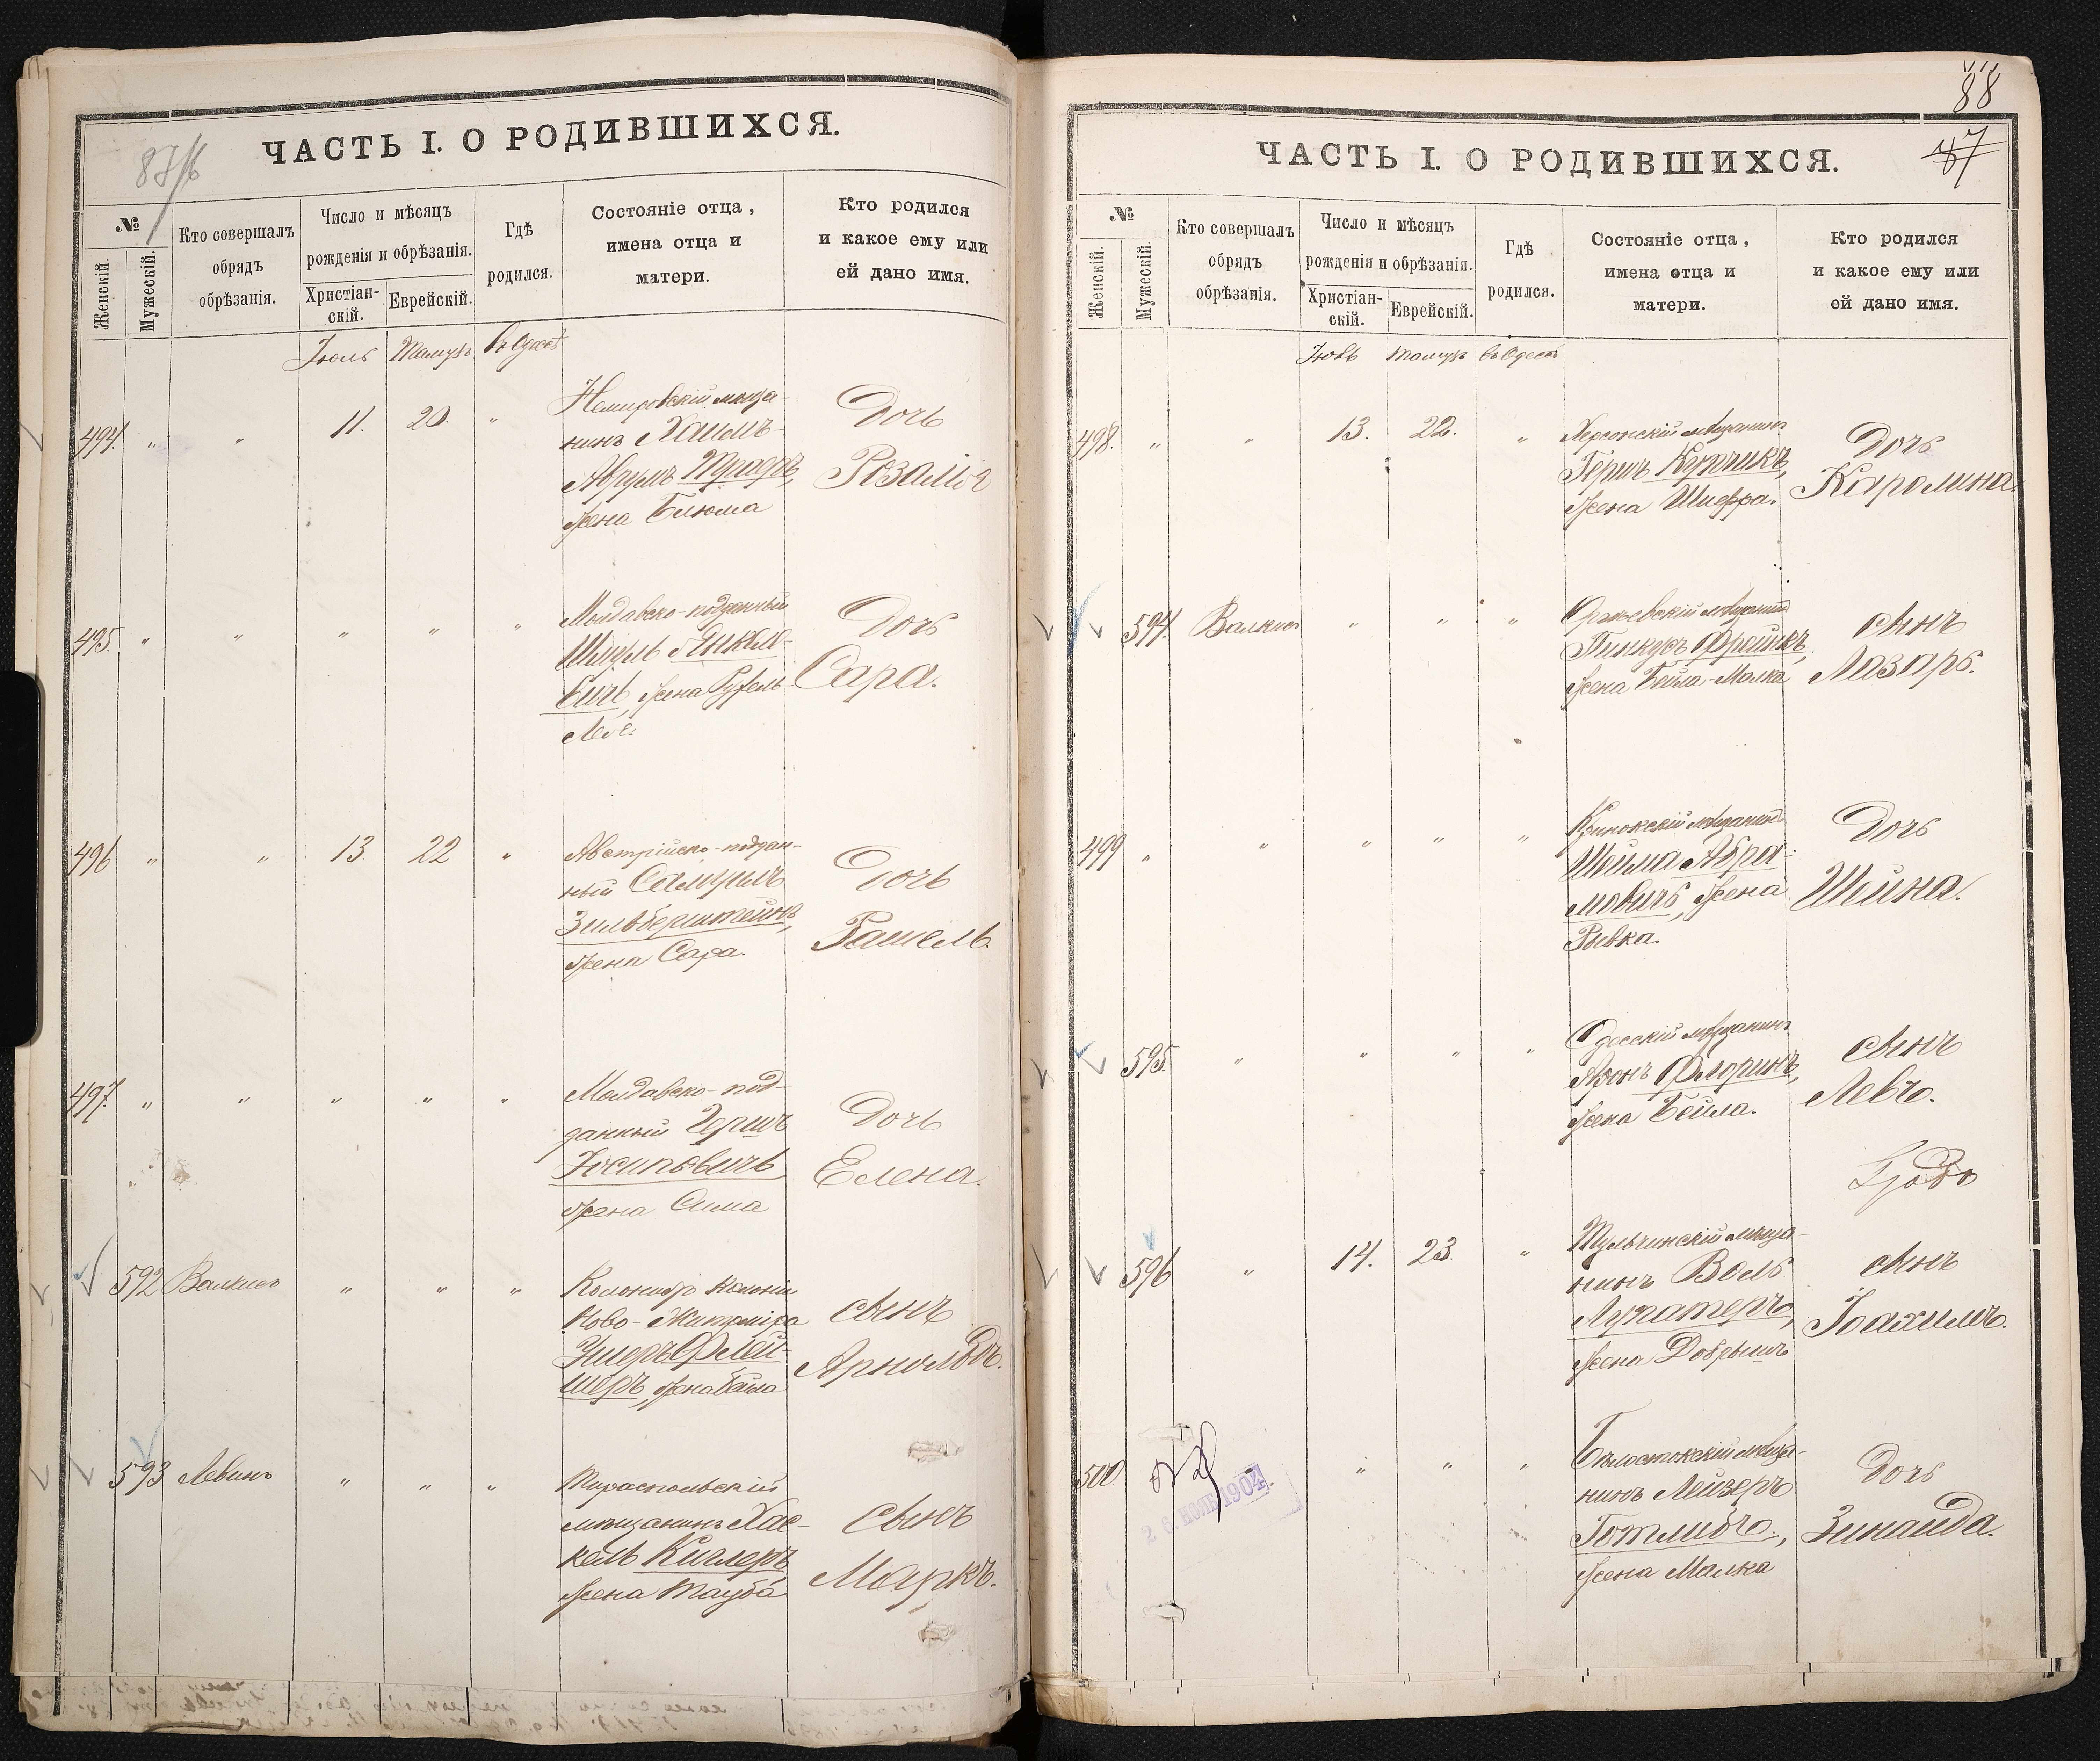 ЧАСТЬ I. О РОДИВШИХСЯ.
№
Женскій.
Мужескій.
Кто совершалъ
обрядъ
обрѣзанія.
Число и мѣсяцъ
рожденія и обрѣзанія.
Христіан-
скій.
Еврейскій.
Гдѣ
родился.
Состояніе отца,
имена отца и
матери.
Кто родился
и какое ему или
ей дано имя.
Іюль Тамузъ въ Одессѣ
494. " " 11. 20. "
Немировскій мѣща-
нинъ Хаимъ-
Аврумъ
жена Блюма
Дочь
Розалія
495. " " " " "
Молдавско-подданный
Шмуль Янкеле-
вичъ, жена
Дочь
Сара.
496 " " 13. 22 "
Австрійско-поддан-
ный Самуилъ
Зильберштейнъ,
жена Сара.
Дочь
Рашель.
497. " " " " "
Молдавско-под-
данный Гершъ
Іосиповичъ
жена Сима
Дочь
Елена.
592 " " "
Колонистъ колоніи
Ново-Житоміра
Ушеръ Флей-
шеръ, жена Бейла
сынъ
Арнольдъ.
593 Левинъ " " "
Тираспольскій
мѣщанинъ Хас-
кель Киглеръ,
жена Тауба
сынъ
Маркъ.
88
87
ЧАСТЬ I. О РОДИВШИХСЯ.
№
Женскій.
Мужескій.
Кто совершалъ
обрядъ
обрѣзанія.
Число и мѣсяцъ
рожденія и обрѣзанія.
Христіан-
скій.
Еврейскій.
Гдѣ
родился.
Состояніе отца,
имена отца и
матери.
Кто родился
и какое ему или
ей дано имя.
Іюль Тамузъ въ Одессѣ
498. " " 13. 22. "
Херсонскій мѣщанинъ
Гершъ Курчикъ,
жена Шифра.
Дочь
Каролина.
594. " " "
мѣщанинъ
Пинкусъ Френкъ,
жена Бейла-Малка
сынъ
Лазарь.
499 " " " " "
Кринокскій мѣщанинъ
Шлёма Абра-
мовичъ, жена
Рывка.
Дочь
Шейна.
595. " " " "
Одесскій мѣщанинъ
Аронъ Флоринъ,
жена Бейла.
сынъ
Левъ.
596 " 14. 23. "
Тульчинскій мѣща-
нинъ Воль
жена Добрышъ
сынъ
Іоахимъ.
500. " " "
Бѣлостокскій мѣща-
нинъ Лейзеръ
Готлибъ,
жена Малка
Дочь
Зинаида.
26 ІЮЛЬ 1904